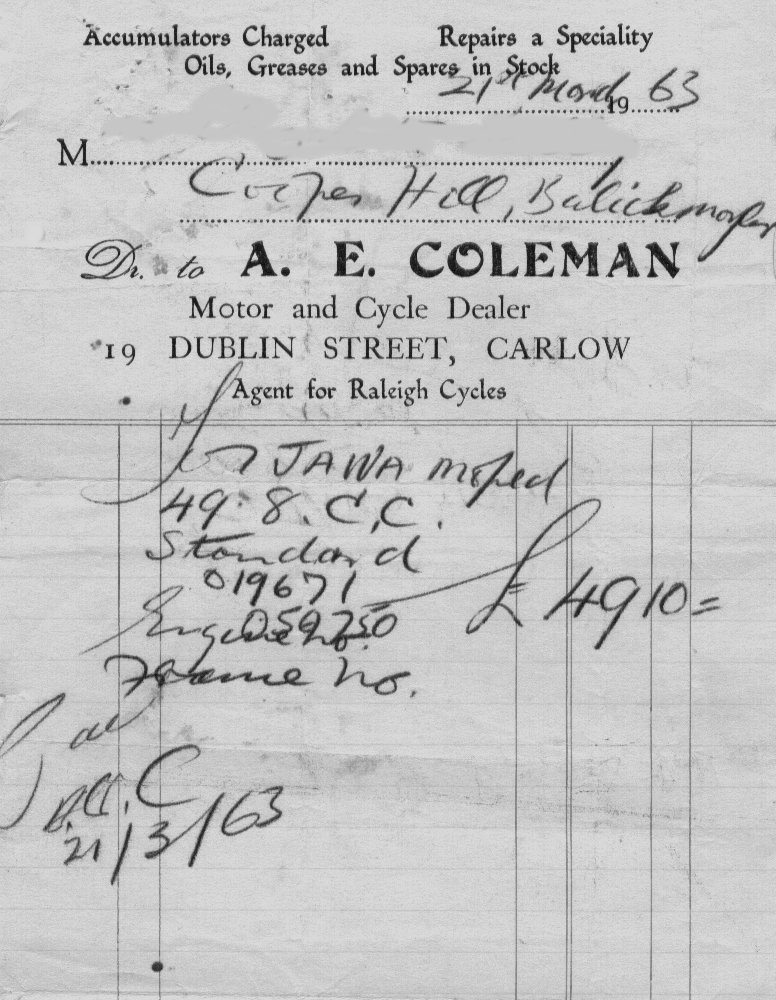 Accumulators Charged Repairs a Speciality
Oils, Greases and Spares in Stock
21st March 1963
M
Cooper Hill, Balickmoyler
Dr. to A. E. COLEMAN
Motor and Cycle Dealer
19 DUBLIN STREET, CARLOW
Agent for Raleigh Cycles
JAWA Moped
49.8.C.C.
Standard
019671
Engine No. 059750 £ 49 10 =
Frame No.
C
21/3/63